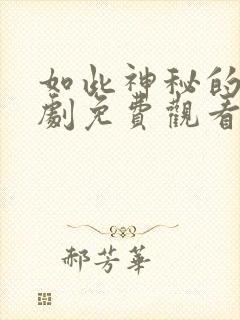 如此神秘的
劇免費觀看
郝芳華